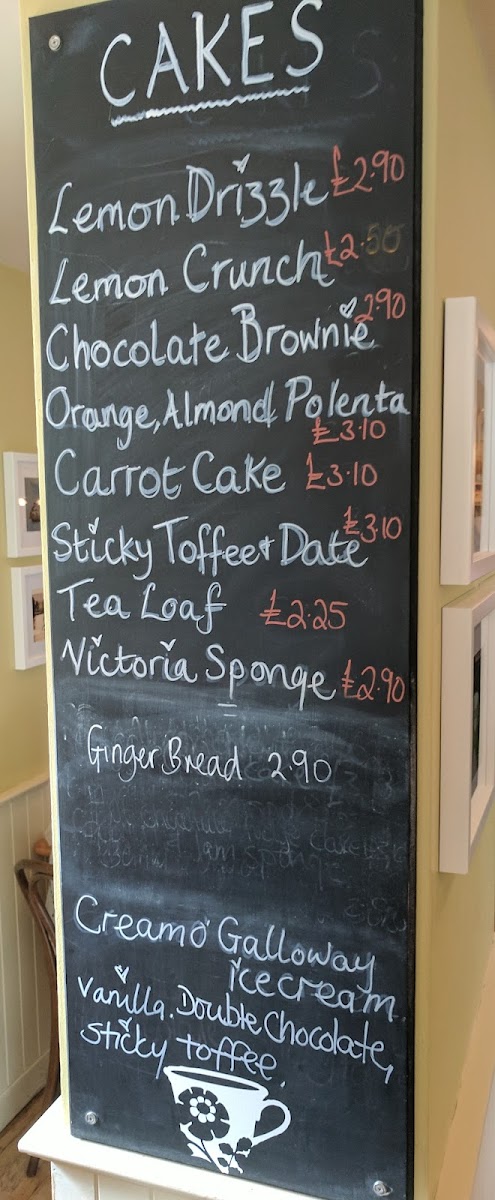 CAKES
Lemon Drizzle £2.90
Lemon Crunch £2.50
Chocolate Brownie 2.90
Orange, Almond Polenta
£3.10
Carrot Cake £3.10
Sticky Toffee + Date £3.10
Tea Loaf £2.25
Victoria Sponge £2.90
Ginger Bread 2.90
Cream o' Galloway
ice cream.
Vanilla. Double Chocolate,
sticky toffee.